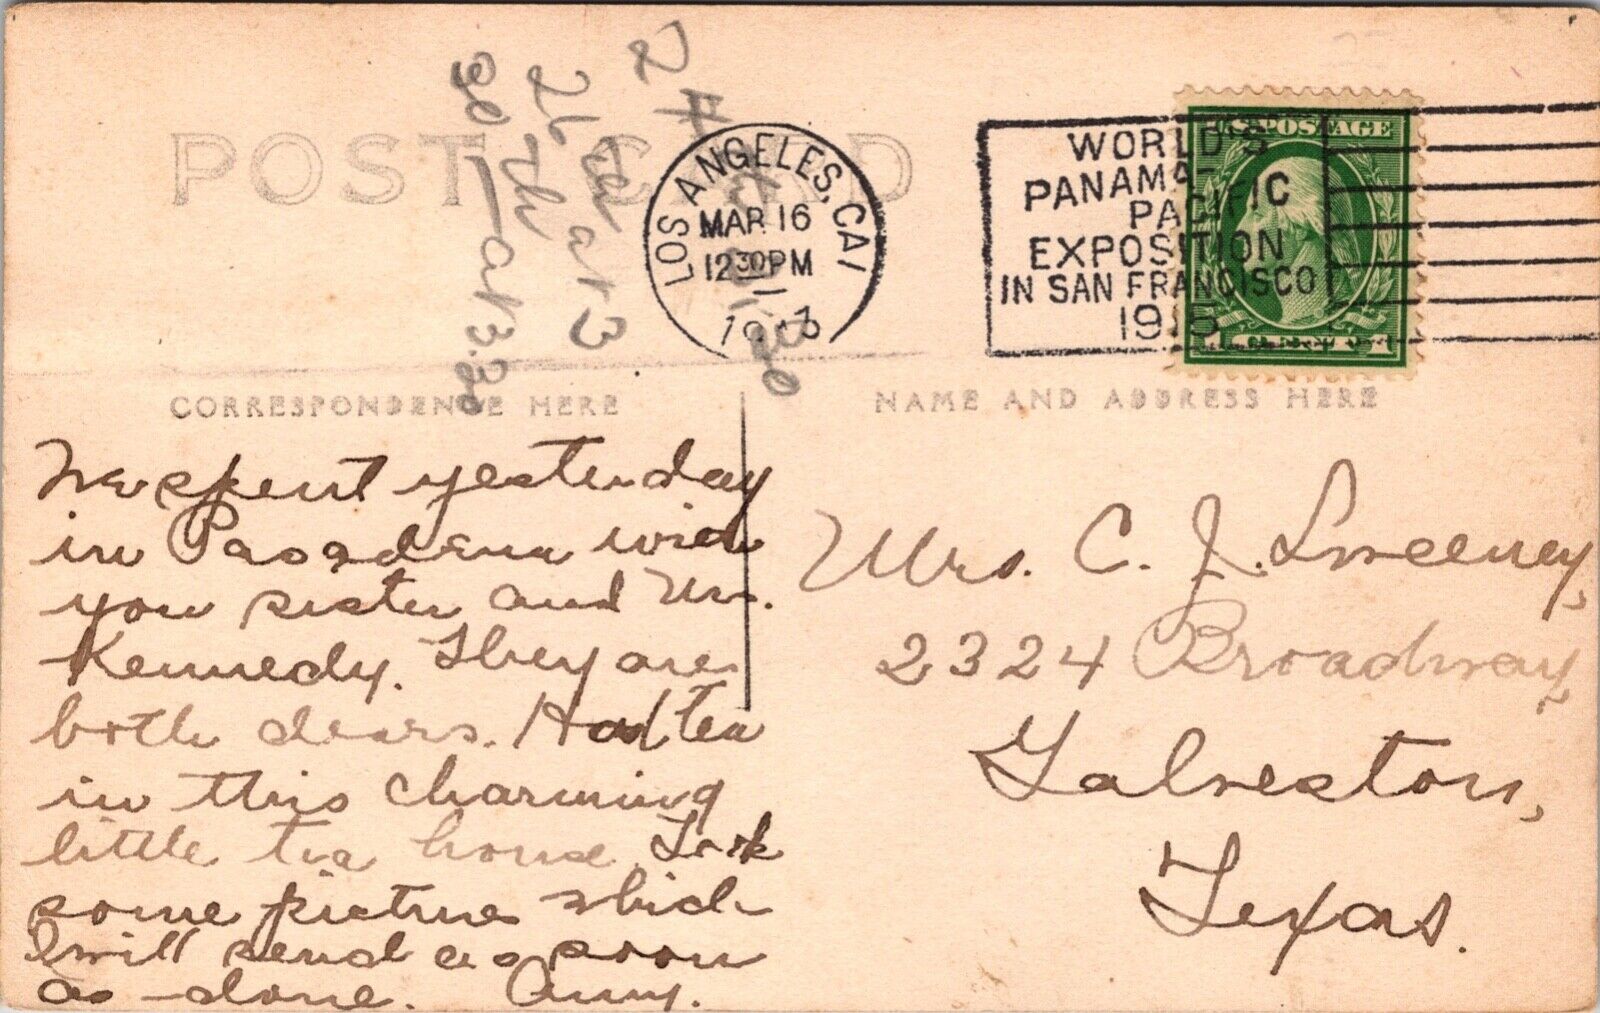 POST CARD
LOS ANGELES, CAL
MAR 16
12 30 PM
WORLD'S
PANAMA-
PACIFIC
EXPOSITION
IN SAN FRANCISCO
1915
U.S. POSTAGE
CORRESPONDENCE HERE
NAME AND ADDRESS HERE
26 th at 3
30 at 3.30
We spent yesterday
in Pasadena with
you sister and Mrs.
Kennedy. They are
both dears. Had tea
in this charming
little tea house. Took
some picture which
I will send as soon
as done. Amy.
Mrs. C. J. Sweeney,
2324 Broadway,
Galveston,
Texas.